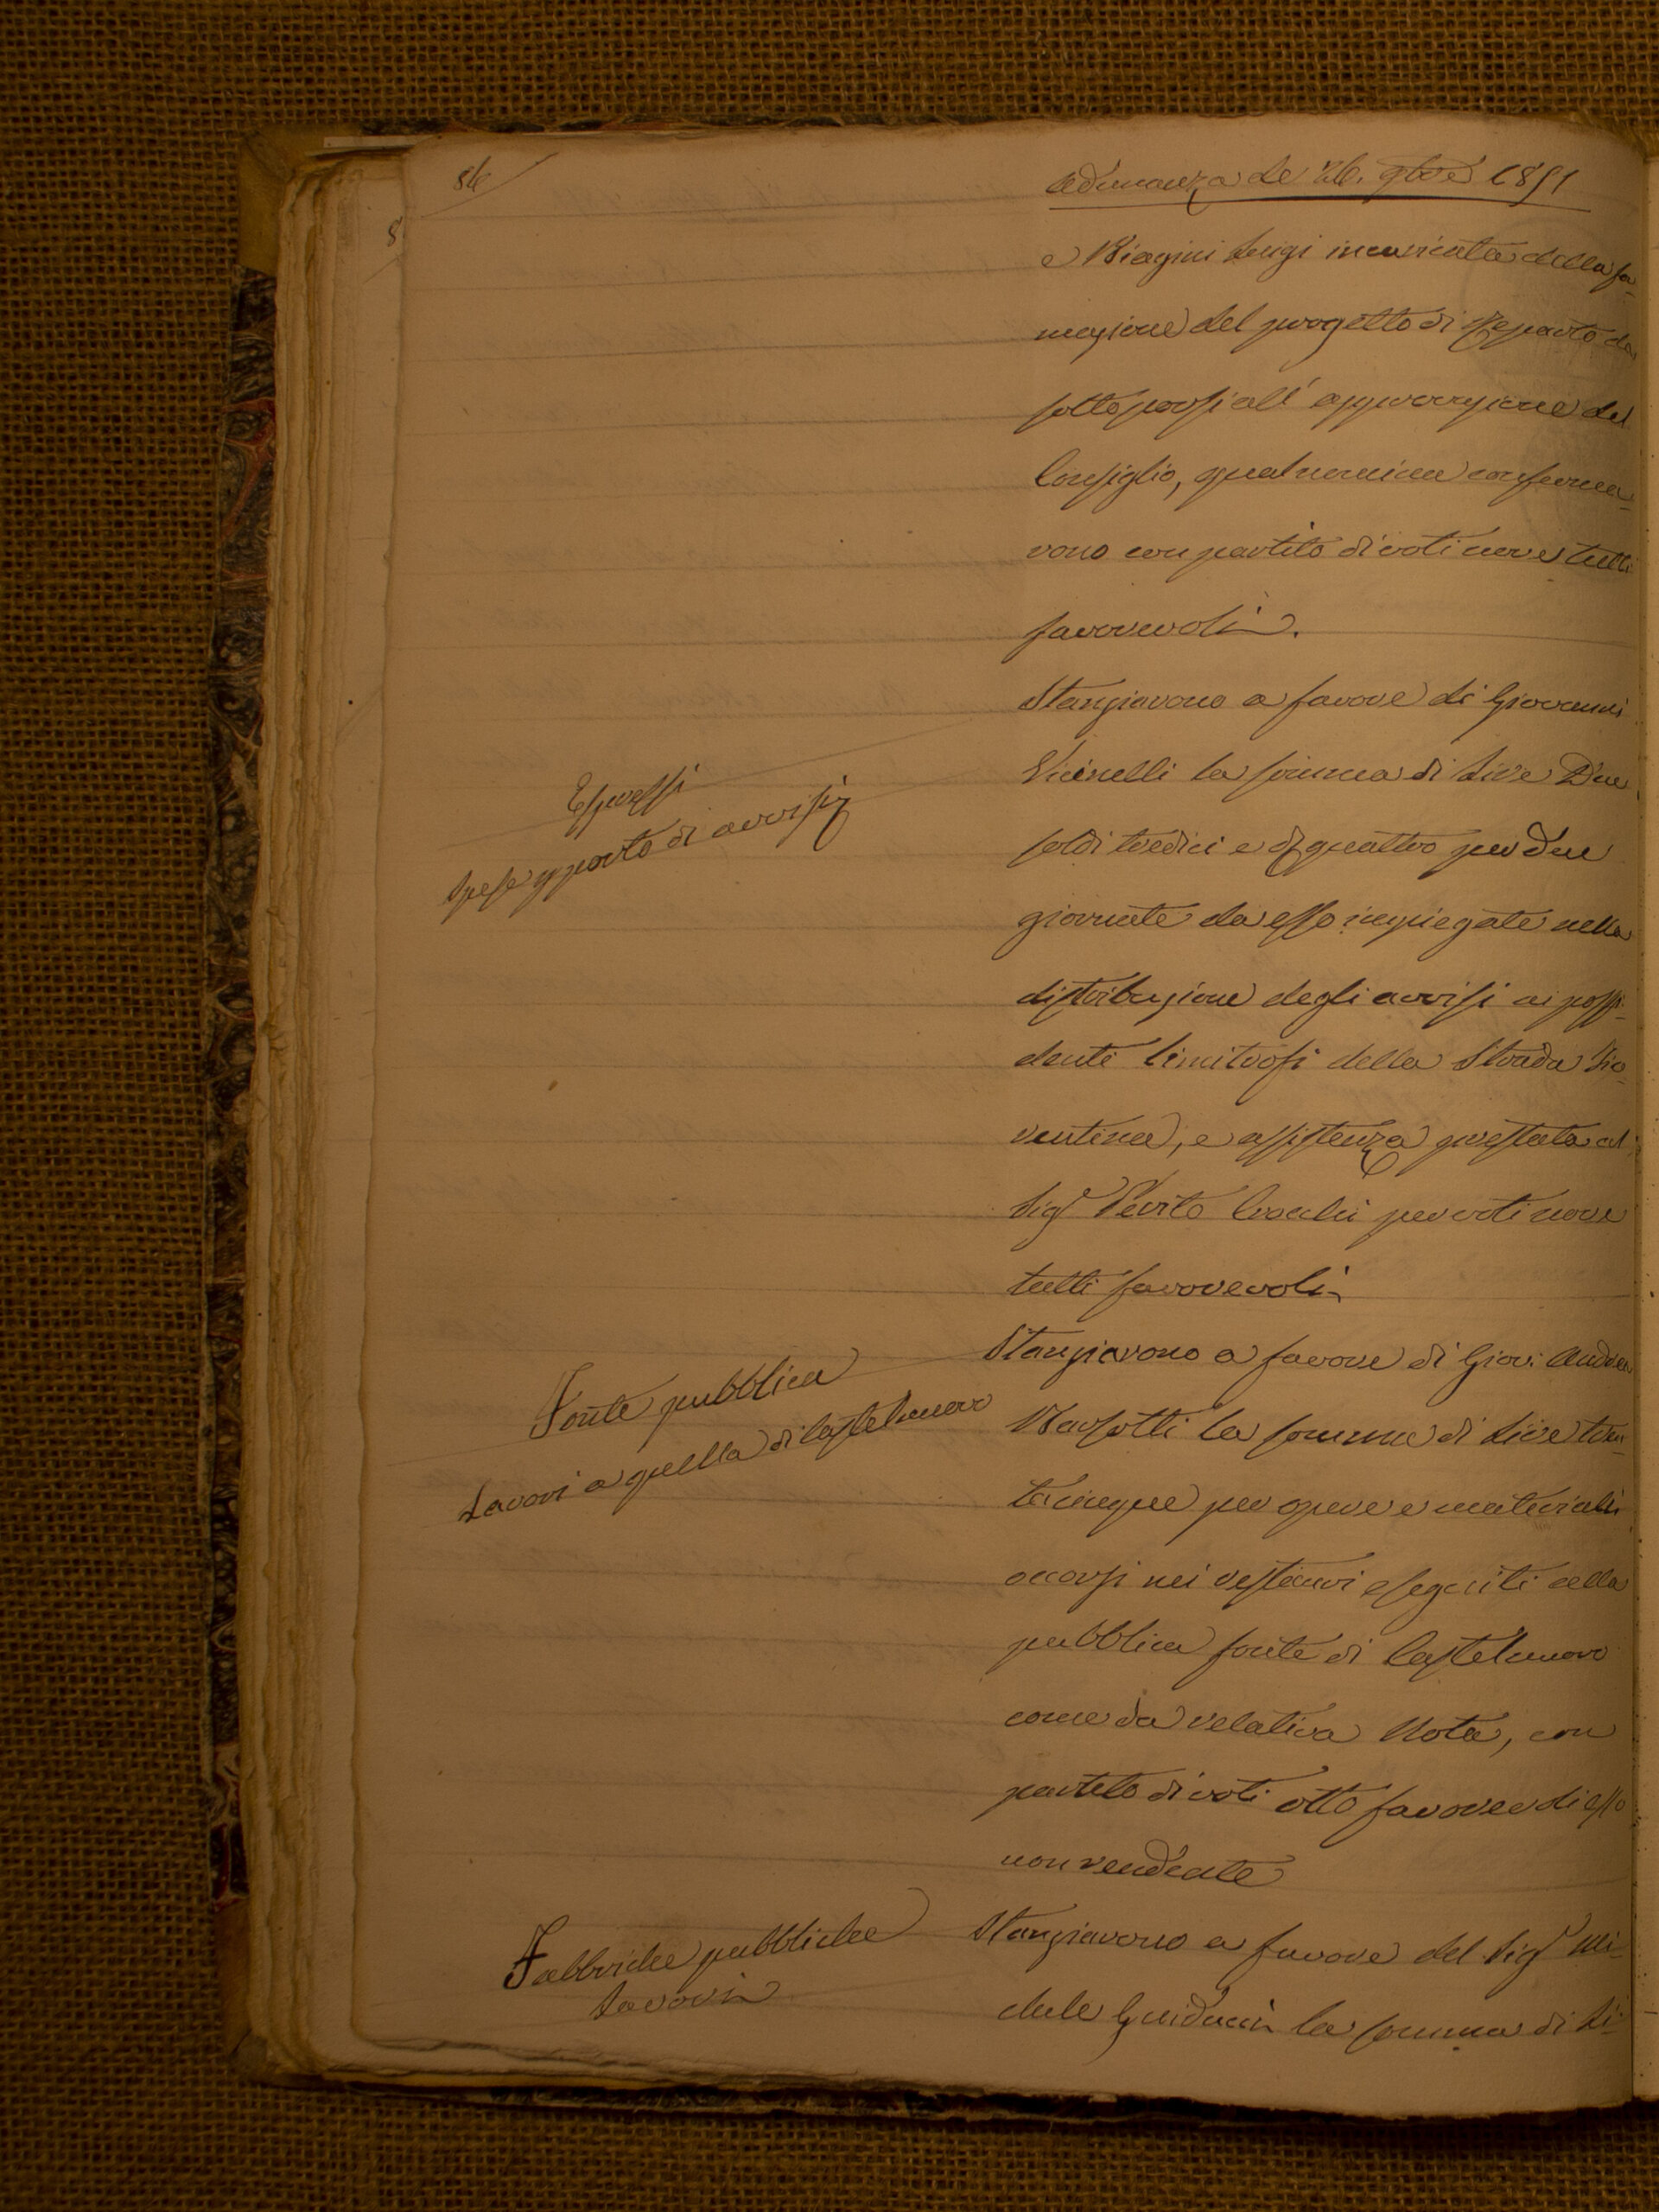 86
Adunanza de' 26. 9bre 1851
e Biagini Luigi incaricata della for-
mazione del progetto di Reparto da
sottoporsi all'approvazione del
Consiglio, qual nomina conferma-
rono con partito di voti nove tutti
favorevoli.
Espressi
Spese p porto di avvisi
Stanziarono a favore di Giovanni
Vicinelli la somma di Lire Due
soldi tredici e d quattro per due
giornate da esso impiegate nella
distribuzione degli avvisi ai possi-
denti limitrofi della Strada Fio-
rentina, e assistenza prestata al
Sigr Perito per voti nove
tutti favorevoli
Fonte pubblica
Lavori a quella di Castelnuovo
Stanziarono a favore di Giov: Andrea
Marsotti la somma di Lire tren-
tacinque per opere e materiali
occorsi nei restauri eseguiti alla
pubblica fonte di Castelnuovo
come da relativa Nota, con
partito di voti otto favorevoli esso
non rendente
Fabbriche pubbliche
Lavori
Stanziarono a favore del Sigr Mi-
chele Guiducci la somma di Li-